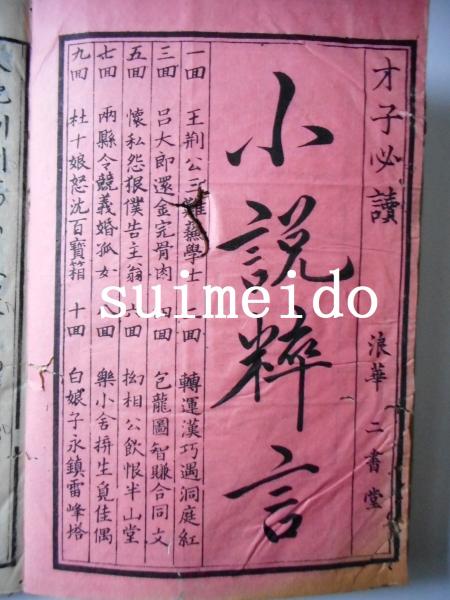 才子必讀 浪華 二書堂
小說粹言
一回 王荊公三難蘇學士 二回 轉運漢巧遇洞庭紅
三回 呂大郎還金完骨肉 四回 包龍圖智賺合同文
五回 懷私怨狠僕告主翁 六回 拗相公飲恨半山堂
七回 兩縣令競義婚孤女 八回 樂小舍拚生覓佳偶
九回 杜十娘怒沈百寶箱 十回 白娘子永鎮雷峰塔
suimeido